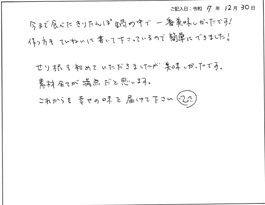 ご記入日:令和 7年 12月 30日
今まで食べたきりたんぽ鍋の中で一番美味しかったです!
作り方もていねいに書いて下さっているので簡単にできました!
せり根も初めていただきましたが美味しかったです。
素材全てが満点だと思います。
これからも幸せの味を届けて下さい